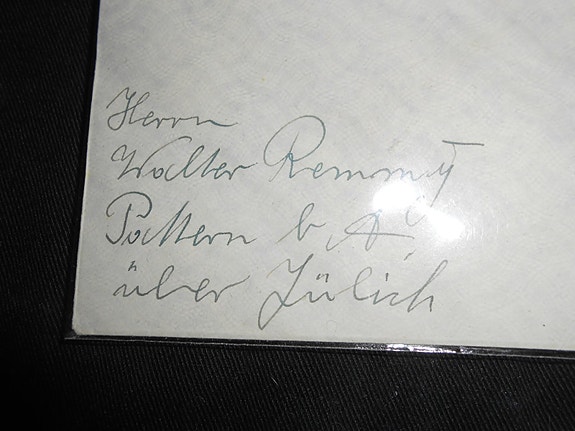 Herrn
Walter Remmy
Pattern b A.
über Jülich